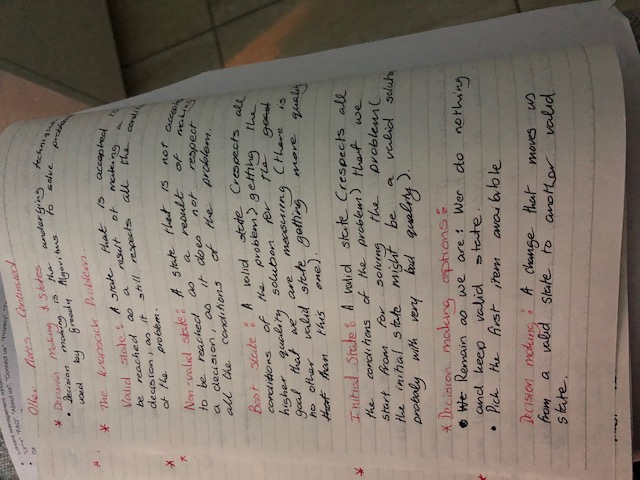 "FAQ" "About us", "Contact us", "Privacy",
Other Notes Continued
* Decision Making & States
• Decision making is the underlying technique
used by Greedy Algorithms to solve problem
* The Knapsack Problem
Valid state: A state that is accepted to
be reached as a result of making a
decision, as it still respects all the
of the problem.
Non-valid state: A state that is not
to be reached as a result of making
a decision, as it does not respect
all the conditions of the problem.
Best state: A valid state (respects all
conditions of the problem) getting the
higher quality solution for the good
goal that we are measuring (there is
no other valid state getting more quality
that than this one).
* Initial State: A valid state (respects all
the conditions of the problem) that we
start from for solving the problem (
the initial state might be a valid
probaly with very bad quality).
* Decision making options:
• We Remain as we are: Wer do nothing
and keep valid state.
• Pick the first item avaibible
Decision making: A change that moves us
from a valid state to another valid
state.